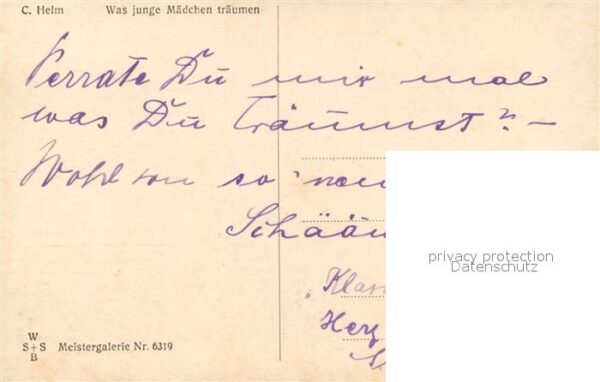 C. Helm Was junge Mädchen träumen
Verrate Du mir mal
was Du träumst? –
Wohl von so 'nem
Schään
"Klar
Her
privacy protection
Datenschutz
W
S+S
B
Meistergalerie Nr. 6319